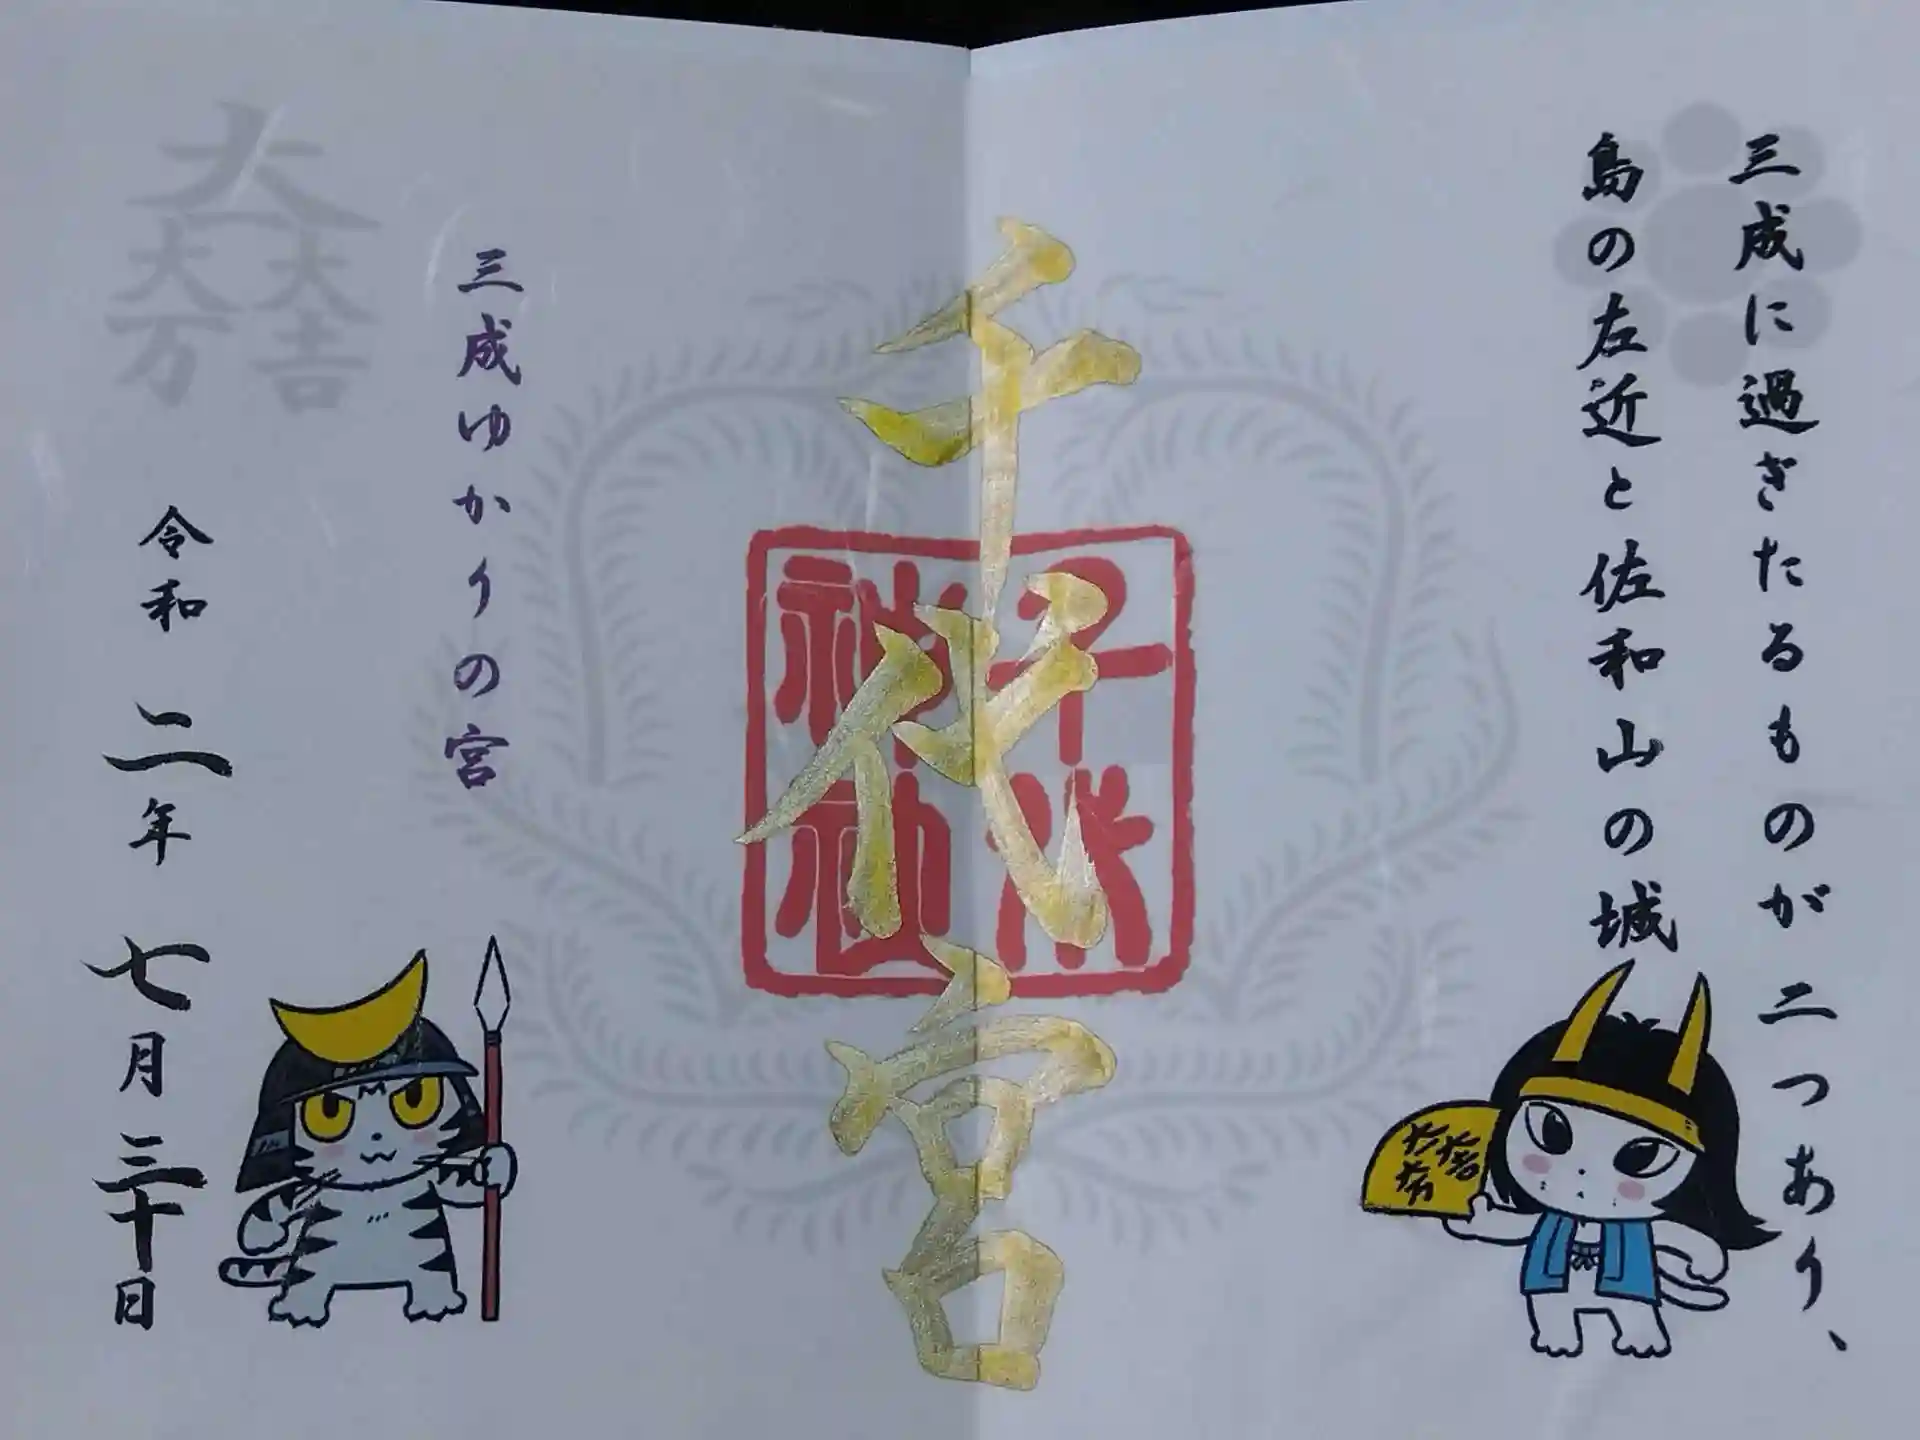 三成に過ぎたるものが二つあり、
島の左近と佐和山の城
大一大万大吉
千代宮
千代神社
三成ゆかりの宮
大一大万大吉
令和二年七月三十日